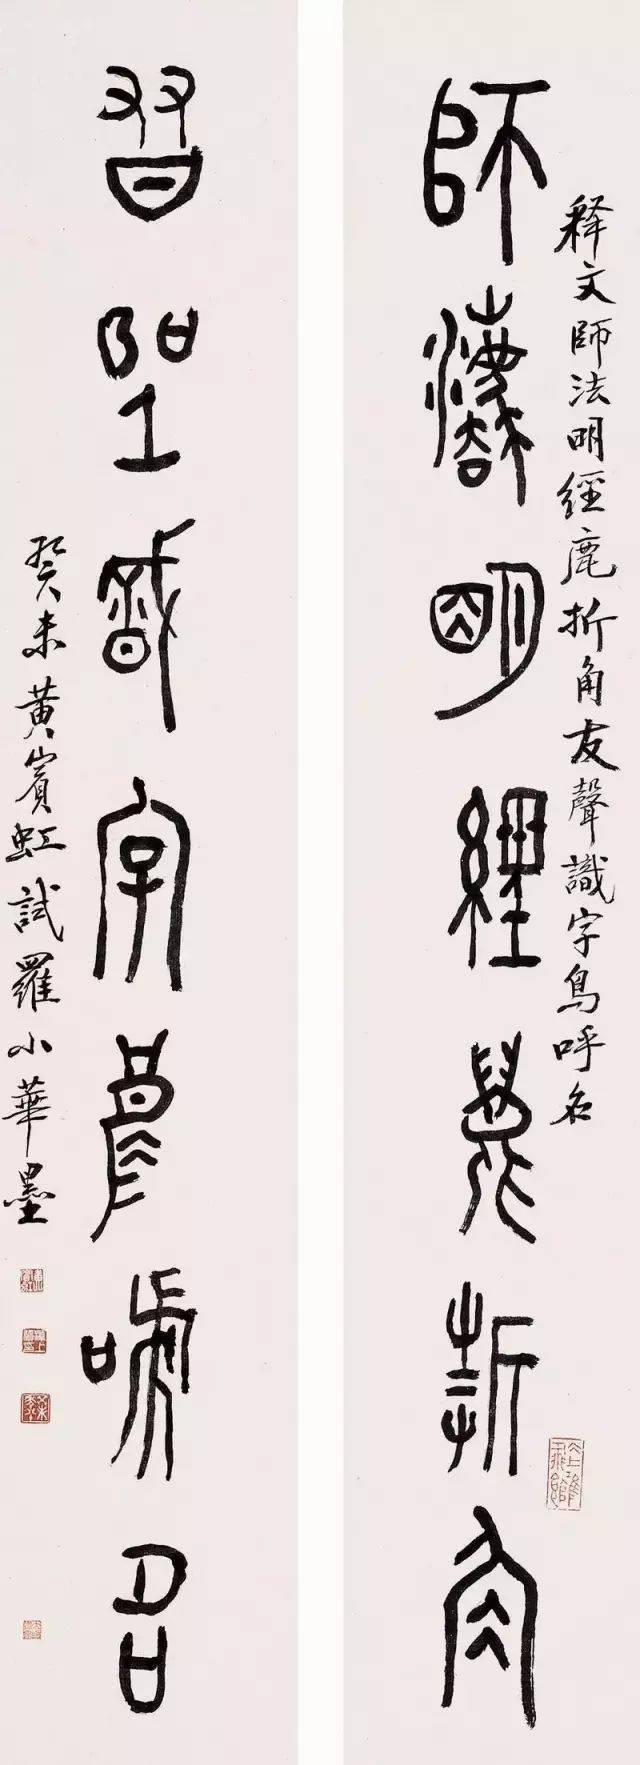 師灋明經鹿折角
释文師法明經鹿折角友聲識字鳥呼名
㕛聖識字鳥呼名
癸未黄賓虹試羅小華墨